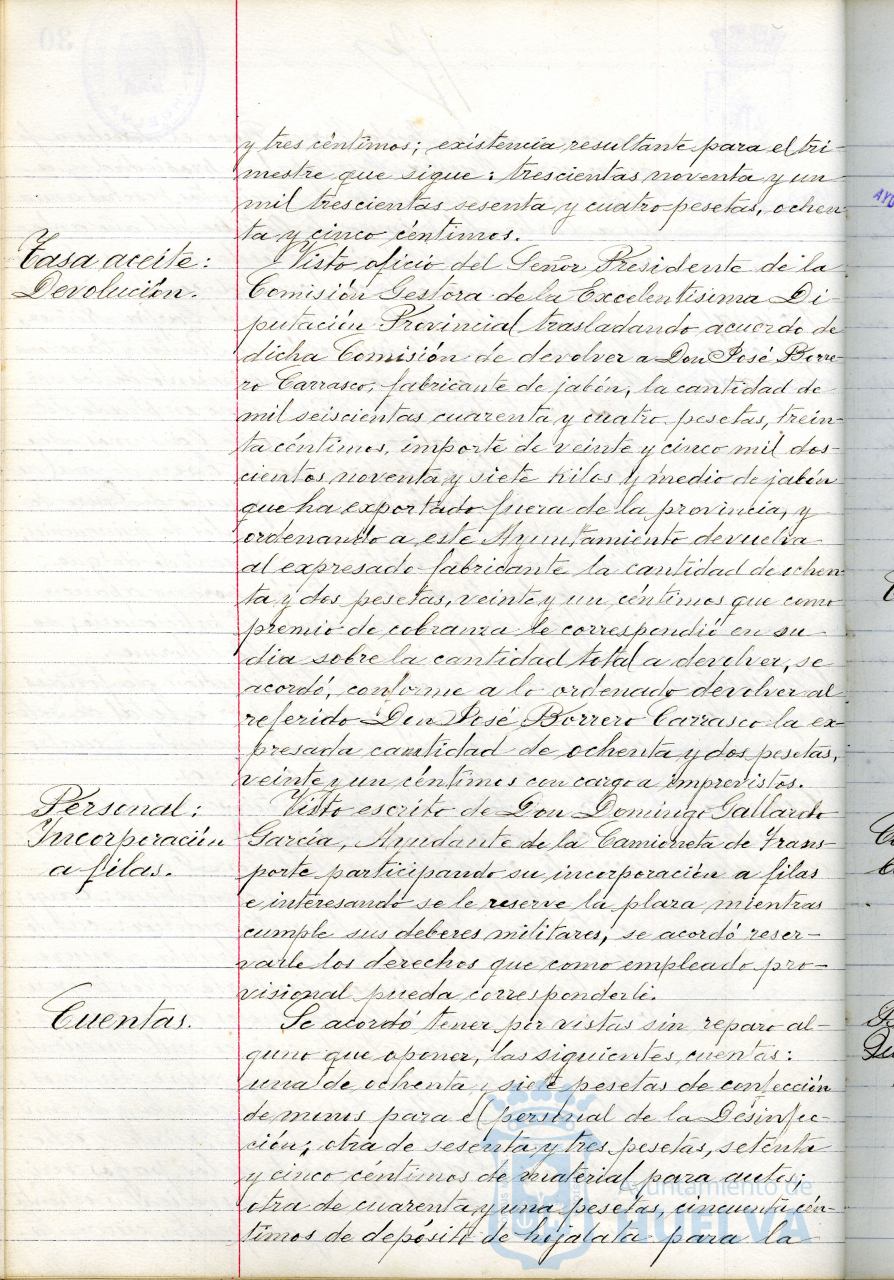 y tres céntimos; existencia resultante para el tri-
mestre que sigue: trescientas noventa y un
mil trescientas sesenta y cuatro pesetas, ochen
ta y cinco céntimos.
Tasa aceite:
Devolución.
Visto oficio del Señor Presidente de la
Comisión Gestora de la Excelentísima Di-
putación Provincial trasladando acuerdo de
dicha Comisión de devolver a Don José Borre-
ro Carrasco, fabricante de jabón, la cantidad de
mil seiscientas cuarenta y cuatro pesetas, trein-
ta céntimos, importe de veinte y cinco mil dos-
cientos noventa y siete kilos y medio de jabón
que ha exportado fuera de la provincia, y
ordenando a este Ayuntamiento devuelva
al expresado fabricante la cantidad de ochen-
ta y dos pesetas, veinte y un céntimos que como
premio de cobranza le correspondió en su
dia sobre la cantidad total a devolver, se
acordó, conforme a lo ordenado devolver al
referido Don José Borrero Carrasco la ex-
presada cantidad de ochenta y dos pesetas,
veinte y un céntimos con cargo a imprevistos.
Personal:
Incorporación
a filas.
Visto escrito de Don Domingo Gallardo
García, Ayudante de la Camioneta de Trans-
porte participando su incorporación a filas
e interesando se le reserve la plaza mientras
cumple sus deberes militares, se acordó reser-
varle los derechos que como empleado pro-
visional pueda corresponderle.
Cuentas.
Se acordó tener por vistas sin reparo al-
guno que oponer, las siguientes cuentas:
una de ochenta y siete pesetas de confección
de monos para el personal de la Desinfec-
ción; otra de sesenta y tres pesetas, setenta
y cinco céntimos de material para autos;
otra de cuarenta y una pesetas, cincuenta cén-
timos de depósito de hojalata para la
Ayuntamiento de
HUELVA